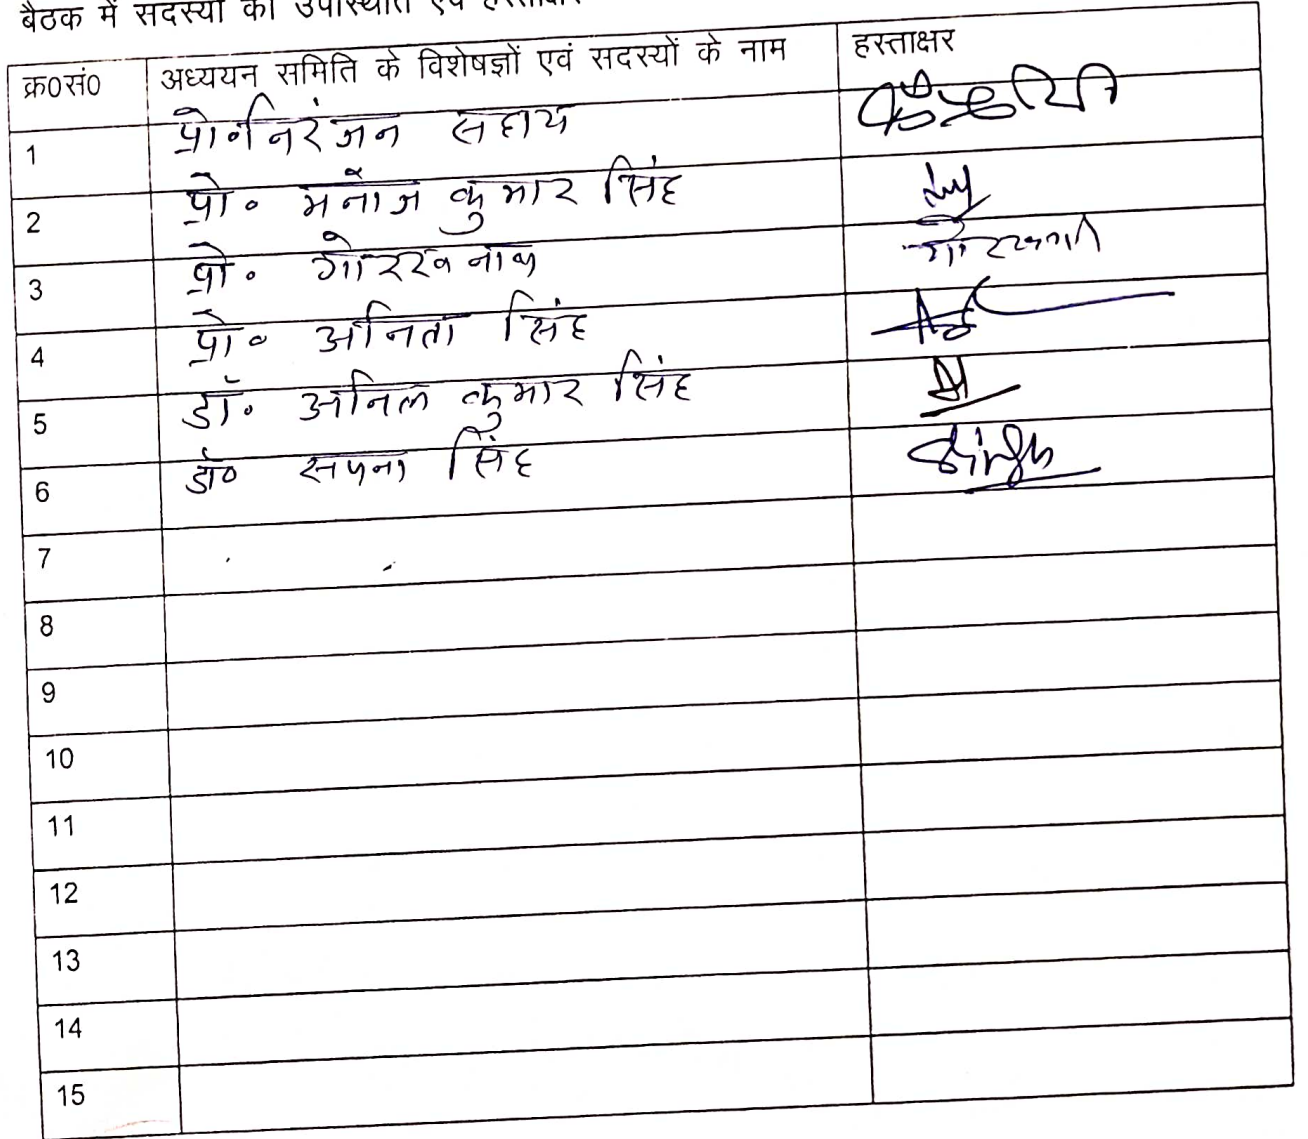 बैठक में सदस्यों की उपस्थिति एवं हस्ताक्षर
क्र०सं० अध्ययन समिति के विशेषज्ञों एवं सदस्यों के नाम हस्ताक्षर
1 प्रो॰ निरंजन सहाय
2 प्रो॰ मनोज कुमार सिंह
3 प्रो॰ गोरखनाथ
4 प्रो॰ अनिता सिंह
5 डॉ॰ अनिल कुमार सिंह
6 डॉ॰ सपना सिंह Singh
7
8
9
10
11
12
13
14
15